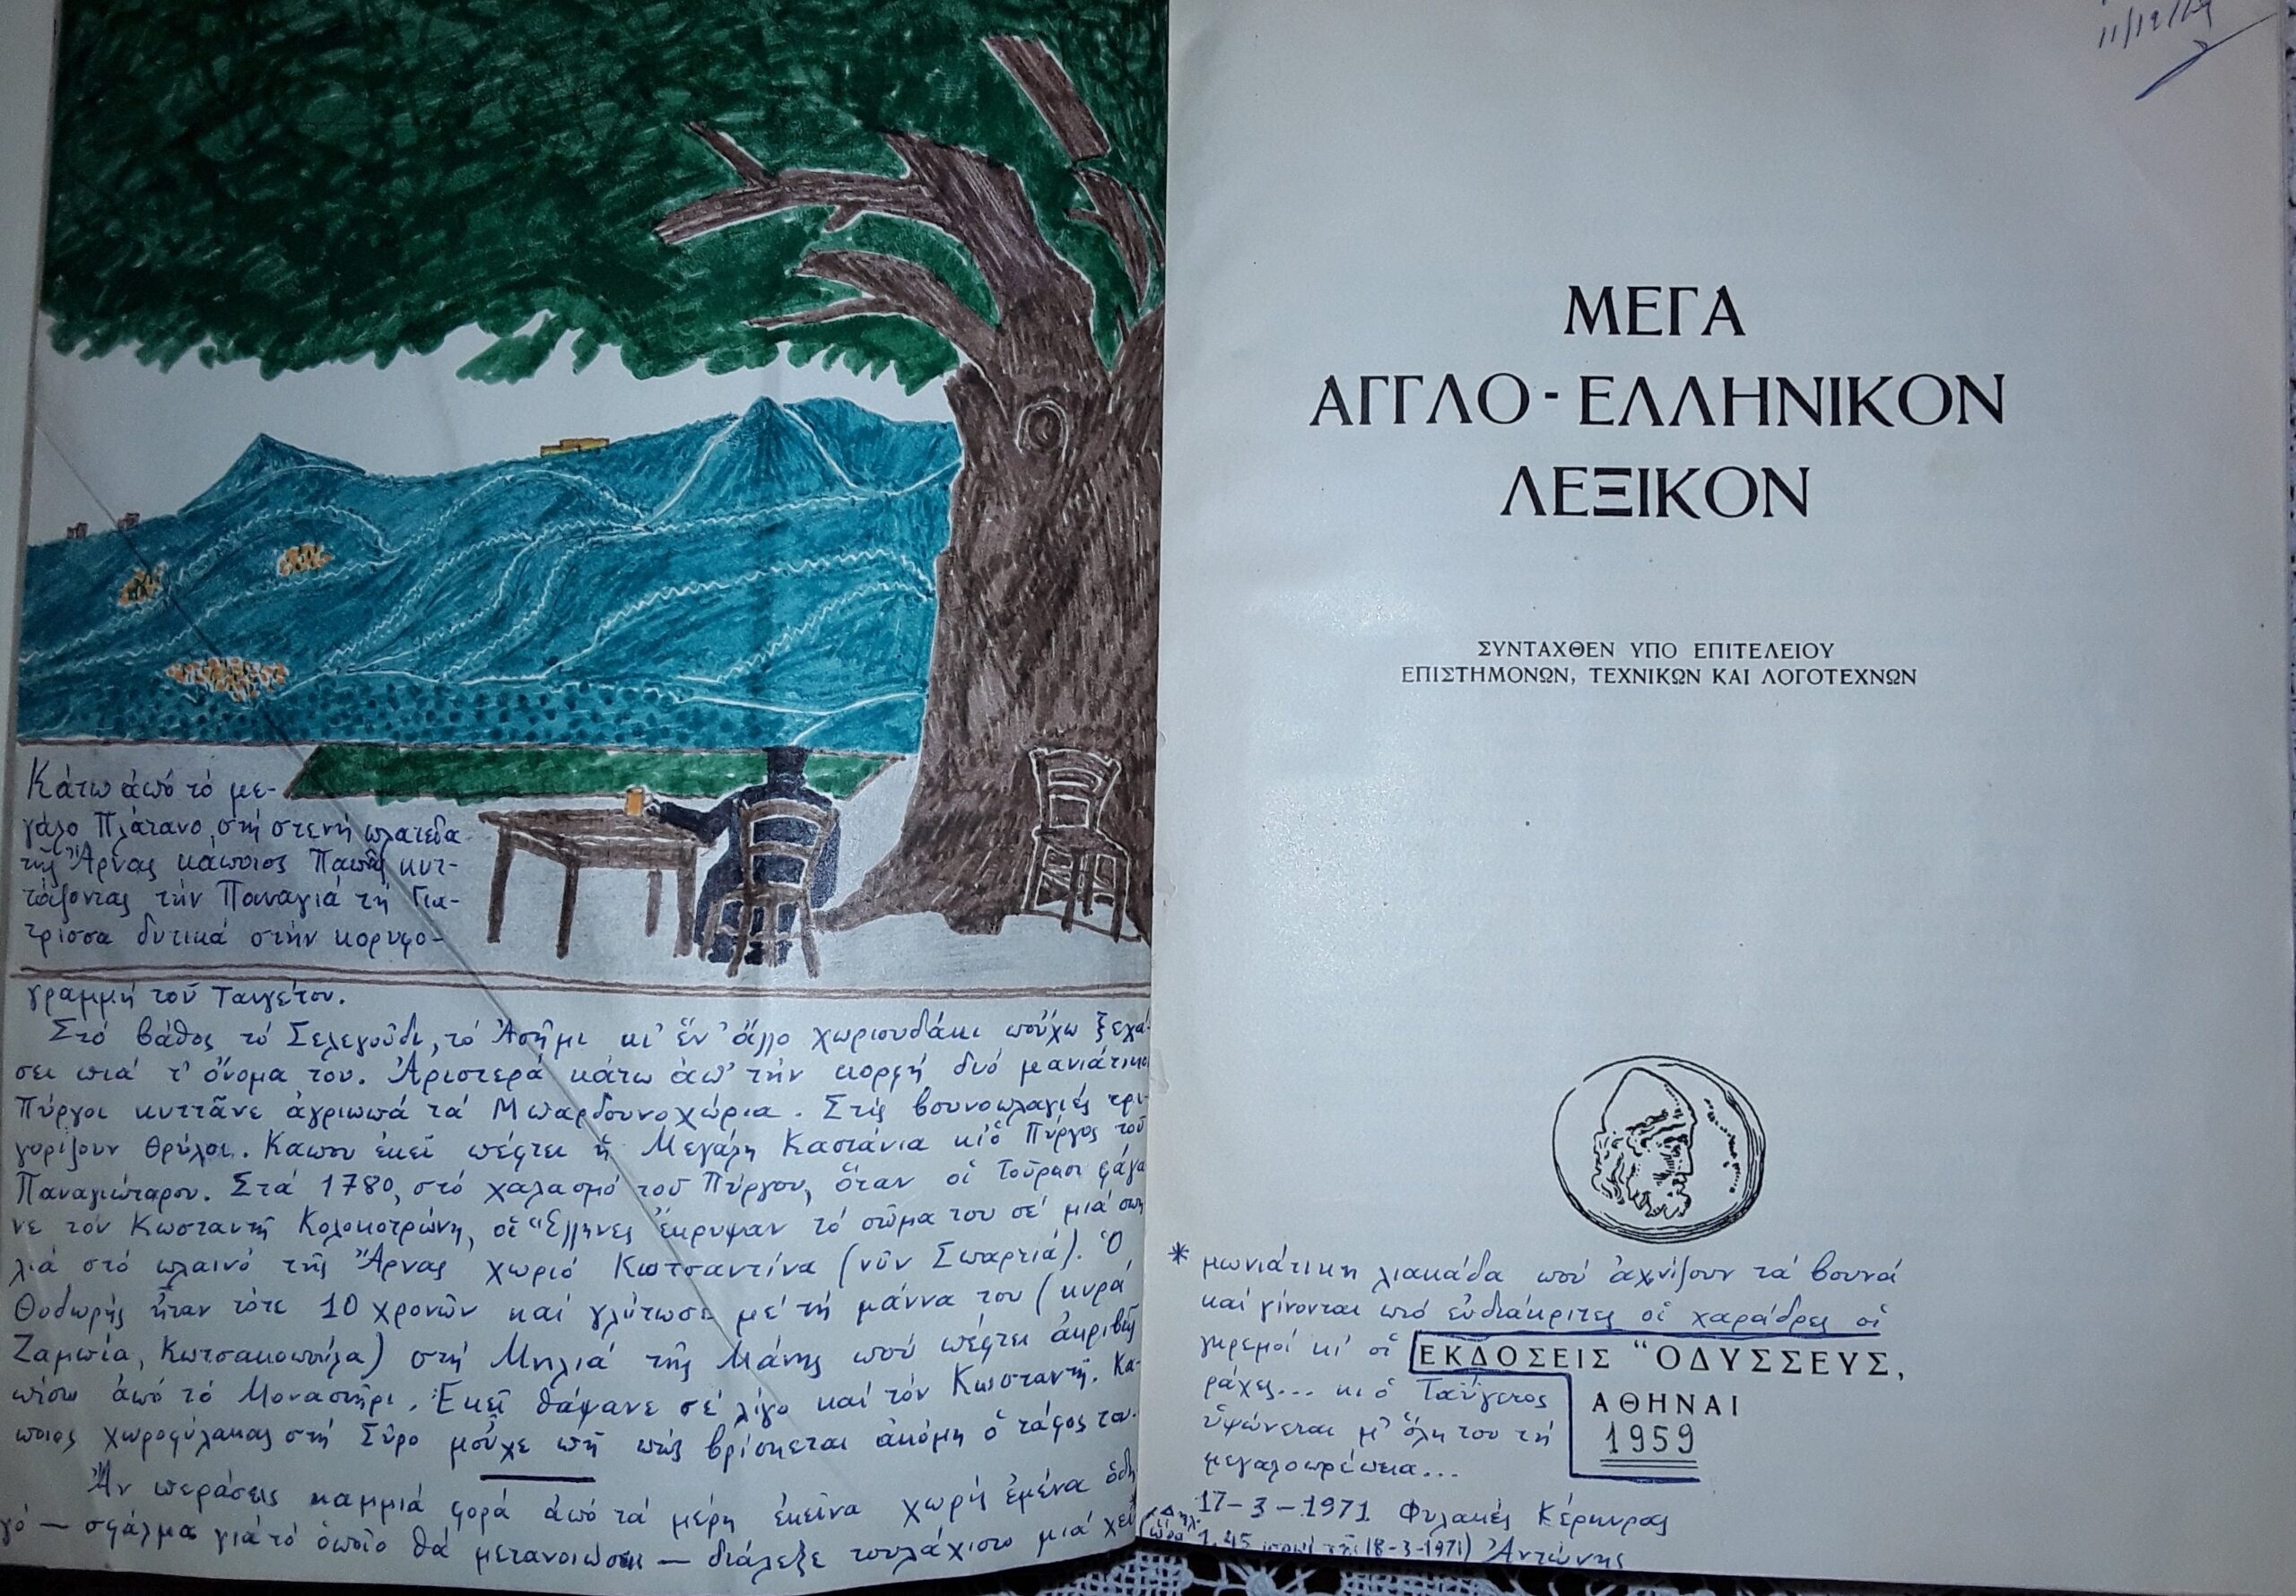 Κάτω ἀπό τό με-
γάλο Πλάτανο, στή στενή πλατεῖα
τῆς Ἄρνας κάποιος Παπᾶς κυτ-
τάζοντας τήν Παναγιά τή Γιά-
τρισσα δυτικά στήν κορυφο-
γραμμή τοῦ Ταυγέτου.
Στό βάθος τό Σελεγοῦδι, τό Ἀσῆμι κι' ἕν' ἄλλο χωριουδάκι πούχω ξεχά-
σει πιά τ' ὄνομα του. Ἀριστερά κάτω ἀπ' τήν κορφή δυό μανιάτικοι
Πύργοι κυττᾶνε ἀγριωπά τά Μπαρδουνοχώρια. Στίς βουνοπλαγιές τρι-
γυρίζουν θρύλοι. Κάπου ἐκεῖ πέφτει ἡ Μεγάλη Καστάνια κι ὁ Πύργος τοῦ
Παναγιώταρου. Στά 1780, στό χαλασμό τοῦ Πύργου, ὅταν οἱ Τοῦρκοι φάγα-
νε τόν Κωσταντῆ Κολοκοτρώνη, οἱ Ἕλληνες ἔκρυψαν τό σῶμα του σέ μιά σπη
λιά στό πλαϊνό τῆς Ἄρνας χωριό Κοτσαντίνα (νῦν Σπαρτιά). Ὁ
Θοδωρής ἦταν τότε 10 χρονῶν καί γλύτωσε μέ τή μάννα του (κυρά
Ζαμπία, Κωτσακοπούλα) στή Μηλιά τῆς Μάνης πού πέφτει ἀκριβῶς
πίσω ἀπό τό Μοναστῆρι. Ἐκεῖ θάψανε σέ λίγο καί τόν Κωσταντῆ. Κά-
ποιος χωροφύλακας στή Σύρο μοὖχε πῆ πώς βρίσκεται ἀκόμη ὁ τάφος του.
Ἄν περάσεις καμμιά φορά ἀπό τά μέρη ἐκεῖνα χωρίς ἐμένα ὁδη
γό — σφάλμα γιά τό ὁποῖο θά μετανοιώσεις — διάλεξε τουλάχιστο μιά χει*
11/12/69
ΜΕΓΑ
ΑΓΓΛΟ - ΕΛΛΗΝΙΚΟΝ
ΛΕΞΙΚΟΝ
ΣΥΝΤΑΧΘΕΝ ΥΠΟ ΕΠΙΤΕΛΕΙΟΥ
ΕΠΙΣΤΗΜΟΝΩΝ, ΤΕΧΝΙΚΩΝ ΚΑΙ ΛΟΓΟΤΕΧΝΩΝ
* μωνιάτικη λιακάδα πού ἀχνίζουν τά βουνά
καί γίνονται πιό εὐδιάκριτες οἱ χαράδρες οἱ
γκρεμοί κι' οἱ
ράχες... κι ὁ Ταΰγετος
ὑψώνεται μ' ὅλη του τή
μεγαλοπρέπεια...
ΕΚΔΟΣΕΙΣ "ΟΔΥΣΣΕΥΣ,
ΑΘΗΝΑΙ
1959
17-3-1971 Φυλακές Κέρκυρας
(δηλ. ὥρα 1.45 πρωί τῆς 18-3-1971) Ἀντώνης